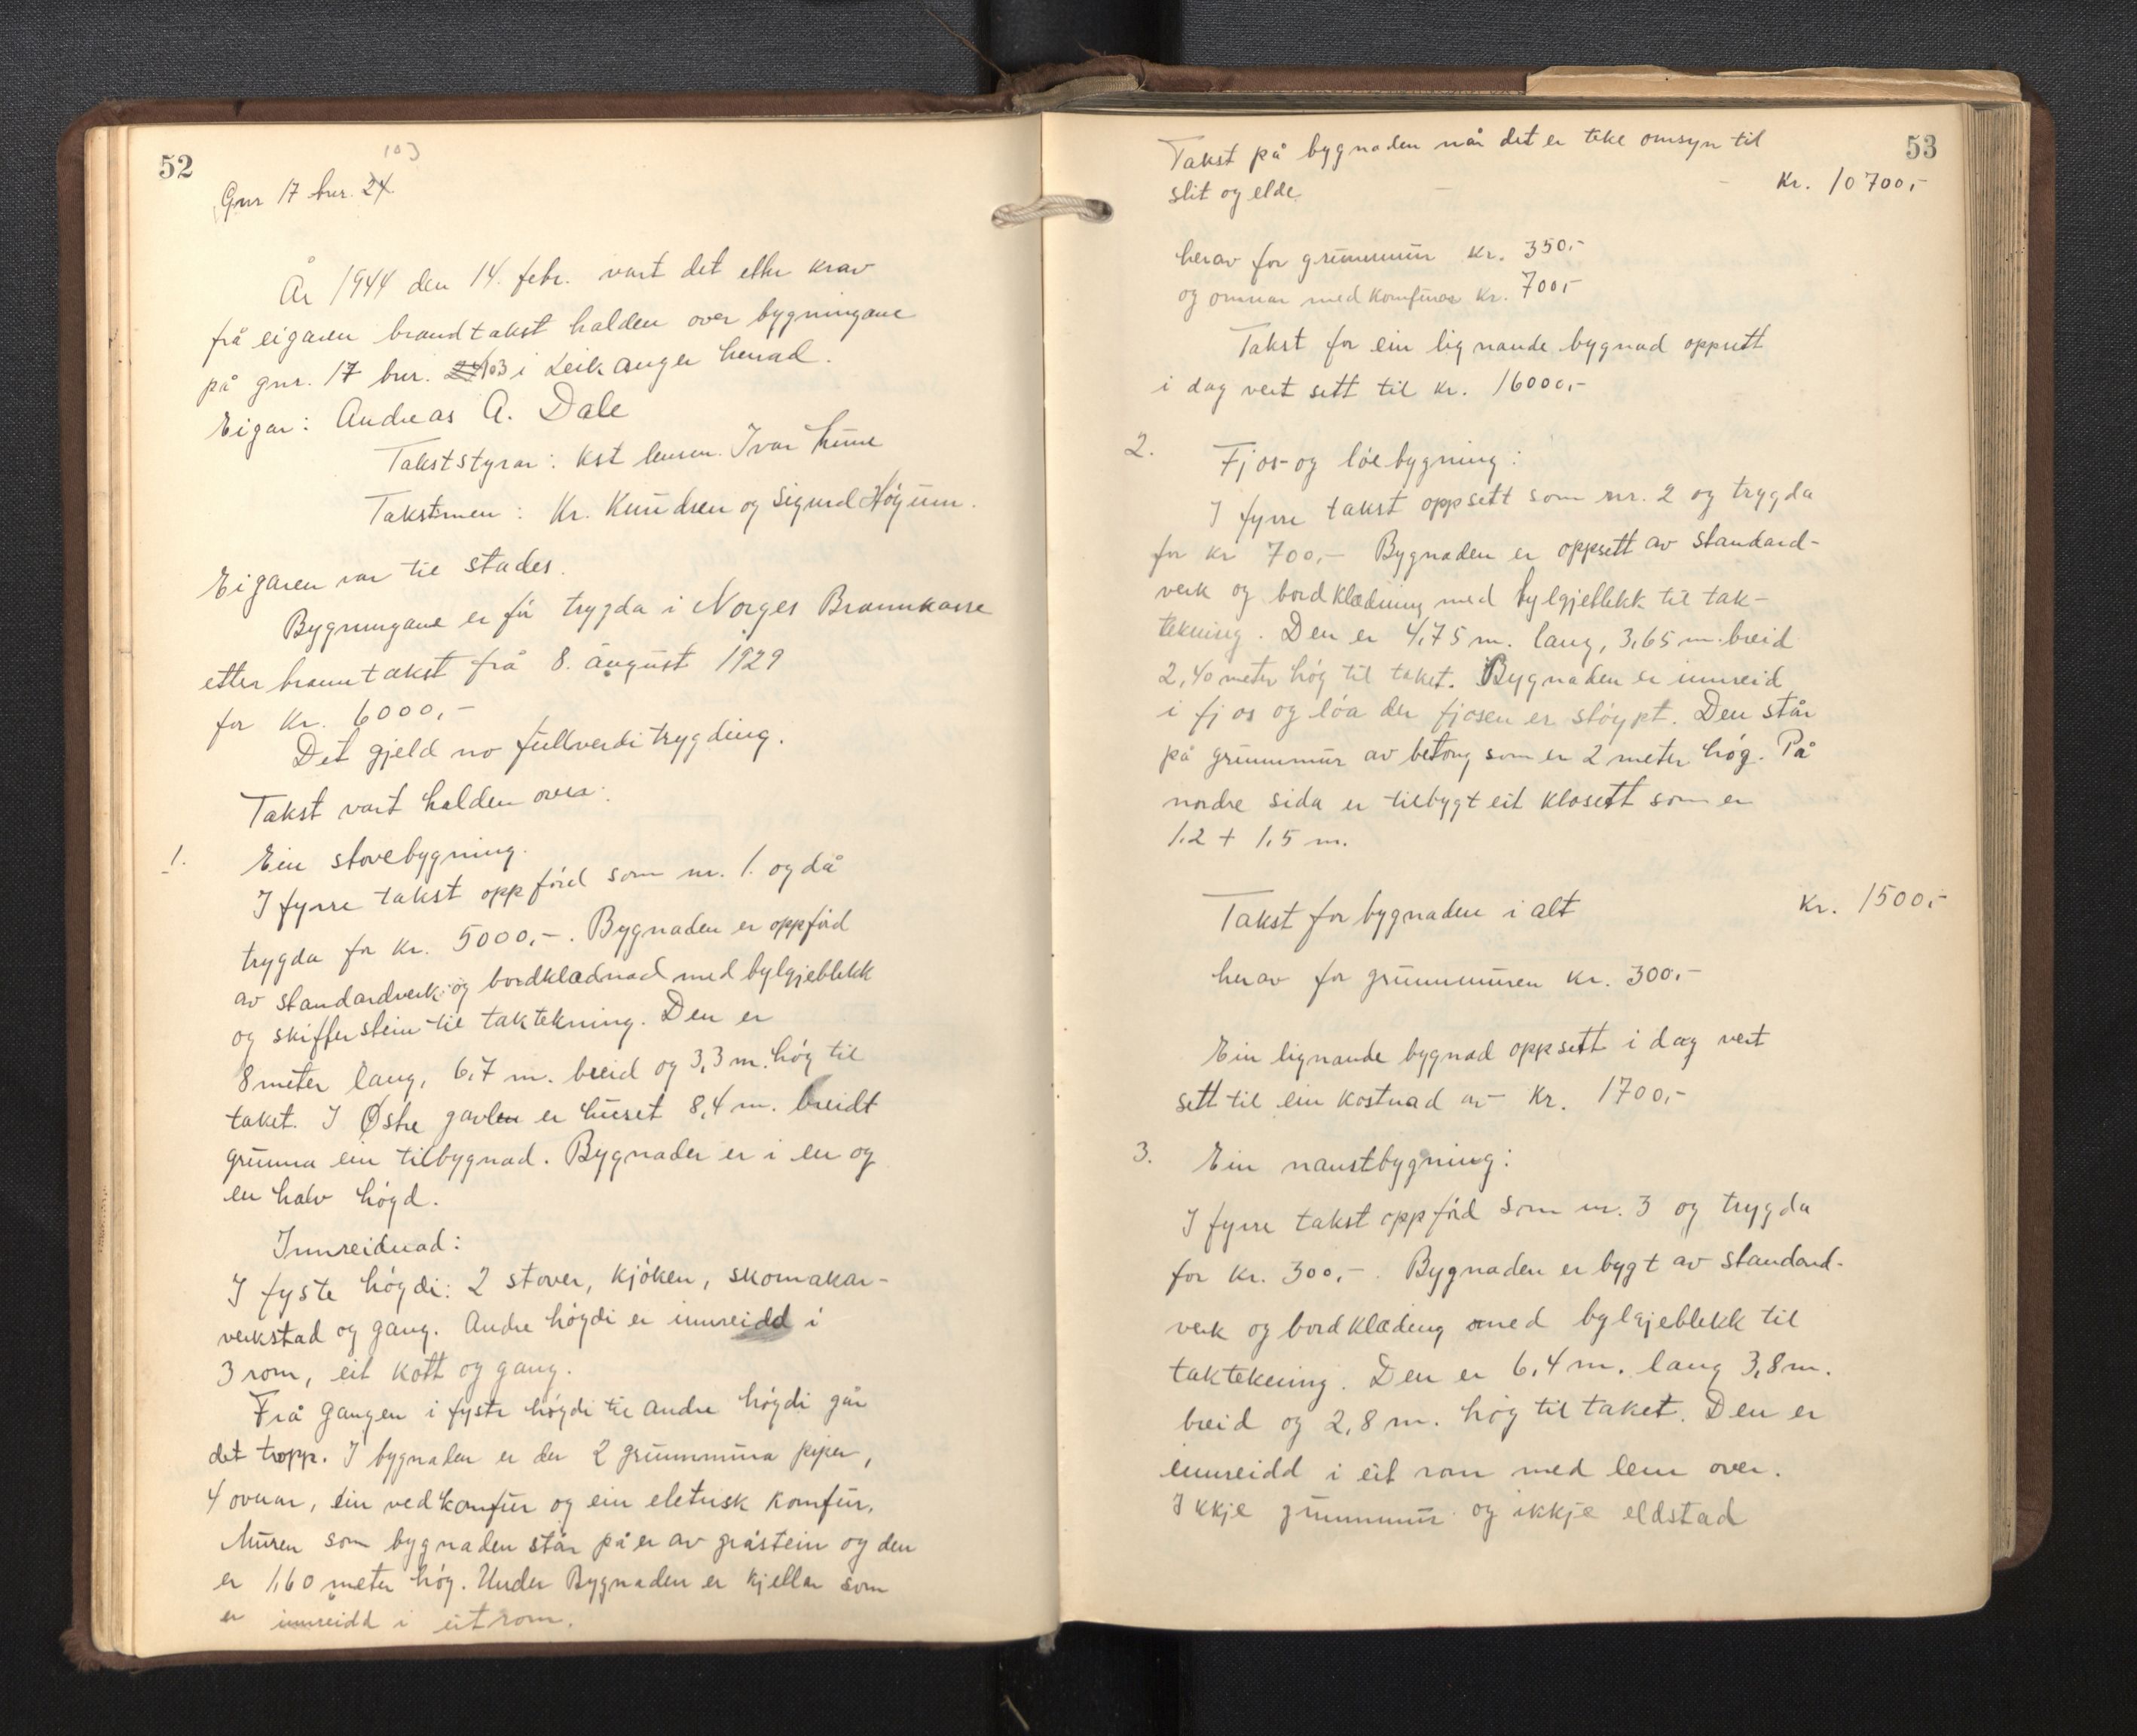 52
103
Gnr 17 bnr. 24.
År 1944 den 14. febr. vart det etter krav
frå eigaren brandtakst halden over bygningane
på gnr. 17 bnr. 24 103 i Leikanger herad.
Eigar: Andreas A. Dale
Takststyrar: kst lensm. Ivar
Takstmen: Kr. Knudsen og Sigurd Høgum.
Eigaren var til stades.
Bygningane er før trygda i Norges Brannkasse
etter branntakst frå 8. august 1929
for kr. 6000,-
Det gjeld no fullverditrygding.
Takst vart halden over:
1. Ein stovebygning.
I fyrre takst oppførd som nr. 1. og då
trygda for kr. 5000,-. Bygnaden er oppførd
av standardverk og bordklædnad med bylgjeblekk
og skifferstein til taktekning. Den er
8 meter lang, 6,7 m. breid og 3,3 m. høg til
taket. I Østre gavlen er huset 8,4 m. breidt
grunna ein tilbygnad. Bygnaden er i en og
en halv høgd.
Innreidnad:
I fyste høgdi: 2 stover, kjøken, skomakar-
verkstad og gang. Andre høgdi er innreidd i
3 rom, eit kott og gang.
Frå gangen i fyste høgdi til andre høgdi går
det tropp. I bygnaden er der 2 grunnmura piper,
4 ovnar, ein vedkomfur og ein eletrisk komfur.
Muren som bygnaden står på er av gråstein og den
er 1,60 meter høg. Under Bygnaden er kjellar som
er innreidd i eit rom.
53
Takst på bygnaden når det er teke omsyn til
slit og elde. - - Kr. 10700,-
herav for grunnmur kr. 350,-
og omnar med komfurar kr. 700,-
Takst for ein lignande bygnad oppsett
i dag vert sett til kr. 16000,-
2. Fjos- og løebygning:
I fyrre takst oppsett som nr. 2 og trygda
for kr 700,- Bygnaden er oppsett av standard-
verk og bordklædning med bylgjeblekk til tak-
tekning. Den er 4,75 m. lang, 3,65 m. breid
2,40 meter høg til taket. Bygnaden er innreid
i fjos og løa der fjosen er støypt. Den står
på grunnmur av betong som er 2 meter høg. På
nordre sida er tilbygt eit klosett som er
1,2 + 1,5 m.
Takst for bygnaden i alt Kr. 1500,-
herav for grunnmuren kr. 300,-
Ein lignande bygnad oppsett i dag vert
sett til ein kostnad av Kr. 1700,-
3. Ein naustbygning:
I fyrre takst oppførd som nr. 3 og trygda
for kr. 300,-. Bygnaden er bygt av standard-
verk og bordklæding med bylgjeblekk til
taktekning. Den er 6,4 m. lang 3,8 m.
breid og 2,8 m. høg til taket. Den er
innreidd i eit rom med lem over.
Ikkje grunnmur og ikkje eldstad